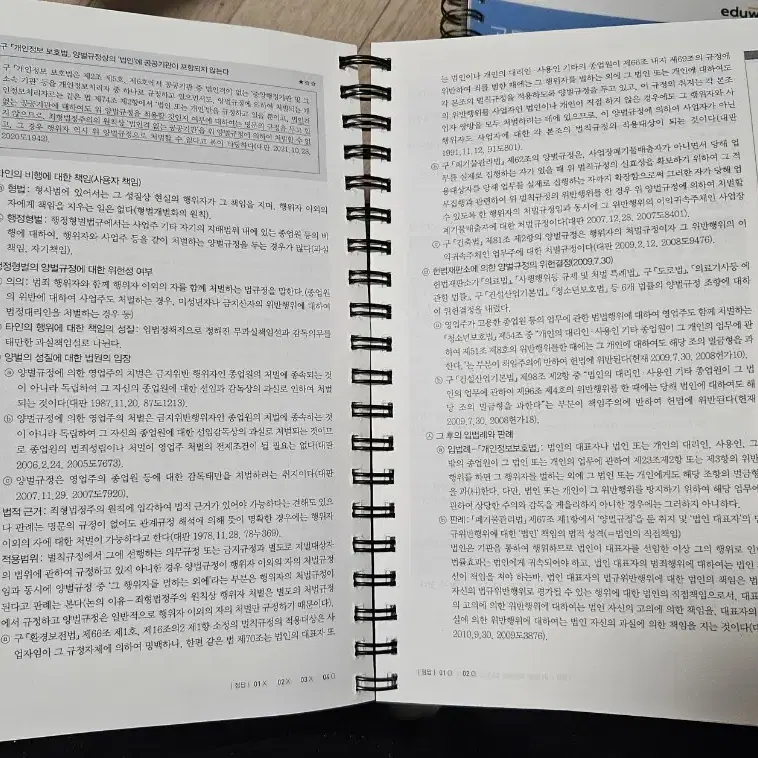 구 「개인정보 보호법」 양벌규정상의 '법인'에 공공기관이 포함되지 않는다
★☆☆
구 「개인정보 보호법」은 제2조 제5호, 제6호에서 공공기관 중 법인격이 없는 '중앙행정기관 및 그
소속 기관' 등을 개인정보처리자 중 하나로 규정하고 있으면서도, 양벌규정에 의하여 처벌되는 개
인정보처리자로는 같은 법 제74조 제2항에서 '법인 또는 개인'만을 규정하고 있을 뿐이고, 법인격
없는 공공기관에 대하여도 위 양벌규정을 적용할 것인지 여부에 대하여는 명문의 규정을 두고 있
지 않으므로, 죄형법정주의의 원칙상 '법인격 없는 공공기관'을 위 양벌규정에 의하여 처벌할 수 없
고, 그 경우 행위자 역시 위 양벌규정으로 처벌할 수 없다고 봄이 타당하다(대판 2021.10.28,
2020도1942).
타인의 비행에 대한 책임(사용자 책임)
형법: 형사범에 있어서는 그 성질상 현실의 행위자가 그 책임을 지며, 행위자 이외의
자에게 책임을 지우는 일은 없다(형벌개별화의 원칙).
행정형벌: 행정형벌법규에서는 사업주 기타 자기의 지배범위 내에 있는 종업원 등의 비
행에 대하여, 행위자와 사업주 등을 같이 처벌하는 양벌규정을 두는 경우가 많다(과실
책임, 자기책임).
행정형벌의 양벌규정에 대한 위헌성 여부
의의: 범죄 행위자와 함께 행위자 이외의 자를 함께 처벌하는 법규정을 말한다(종업원
의 위반에 대하여 사업주도 처벌하는 경우, 미성년자나 금치산자의 위반행위에 대하여
법정대리인을 처벌하는 경우 등)
타인의 행위에 대한 책임의 성질: 입법정책적으로 정해진 무과실책임설과 감독의무를
태만한 과실책임설로 나뉜다.
양벌의 성질에 대한 법원의 입장
ⓐ 양벌규정에 의한 영업주의 처벌은 금지위반 행위자인 종업원의 처벌에 종속되는 것
이 아니라 독립하여 그 자신의 종업원에 대한 선임과 감독상의 과실로 인하여 처벌
되는 것이다(대판 1987.11.20, 87도1213).
ⓑ 양벌규정에 의한 영업주의 처벌은 금지위반행위자인 종업원의 처벌에 종속하는 것
이 아니라 독립하여 그 자신의 종업원에 대한 선임감독상의 과실로 처벌되는 것이므
로 종업원의 범죄성립이나 처벌이 영업주 처벌의 전제조건이 될 필요는 없다(대판
2006.2.24, 2005도7673).
ⓒ 양벌규정은 영업주의 종업원 등에 대한 감독태만을 처벌하려는 취지이다(대판
2007.11.29, 2007도7920).
법적 근거: 죄형법정주의의 원칙에 입각하여 법적 근거가 있어야 가능하다는 견해도 있으
나 판례는 명문의 규정이 없어도 관계규정 해석에 의해 뜻이 명확한 경우에는 행위자
이외의 자에 대한 처벌이 가능하다고 한다(대판 1978.11.28, 78누369).
적용범위: 벌칙규정에서 그에 선행하는 의무규정 또는 금지규정과 별도로 처벌대상자
의 범위에 관하여 규정하고 있지 아니한 경우 양벌규정이 행위자 이외의 자의 처벌규정
임과 동시에 양벌규정 중 '그 행위자를 벌하는 외에'라는 부분은 행위자의 처벌규정이
된다고 판례는 본다(논의 이유-죄형법정주의 원칙상 행위자 처벌은 별도의 처벌규정
에서 규정하고 양벌규정은 일반적으로 행위자 이외의 자의 처벌만 규정하기 때문이다).
ⓐ 구 「환경보전법」 제66조 제1호, 제16조의2 제1항 소정의 벌칙규정의 적용대상은 사
업자임이 그 규정자체에 의하여 명백하나, 한편 같은 법 제70조는 법인의 대표자 또
|정답| 01 X 02 X 03 X 04 O
eduw
는 법인이나 개인의 대리인·사용인 기타의 종업원이 제66조 내지 제69조의 규정에
위반하여 죄를 범한 때에는 그 행위자를 벌하는 외에 그 법인 또는 개인에 대하여도
각 본조의 벌칙규정을 적용하도록 양벌규정을 두고 있고, 이 규정의 취지는 각 본조
의 위반행위를 사업자인 법인이나 개인이 직접 하지 않은 경우에도 그 행위자와 사
업자 쌍방을 모두 처벌하려는 데에 있으므로, 이 양벌규정에 의하여 사업자가 아닌
행위자도 사업자에 대한 각 본조의 벌칙규정의 적용대상이 되는 것이다(대판
1991.11.12, 91도801).
ⓑ 구 「폐기물관리법」 제62조의 양벌규정은, 사업장폐기물배출자가 아니면서 당해 업
무를 실제로 집행하는 자가 있을 때 위 벌칙규정의 실효성을 확보하기 위하여 그 적
용대상자를 당해 업무를 실제로 집행하는 자까지 확장함으로써 그러한 자가 당해 업
무집행과 관련하여 위 벌칙규정의 위반행위를 한 경우 위 양벌규정에 의하여 처벌할
수 있도록 한 행위자의 처벌규정임과 동시에 그 위반행위의 이익귀속주체인 사업장
폐기물배출자에 대한 처벌규정이다(대판 2007.12.28, 2007도8401).
ⓒ 구 「건축법」 제81조 제2항의 양벌규정은 행위자의 처벌규정임과 동시에 그 위반행위의 이
익귀속주체인 업무주에 대한 처벌규정이다(대판 2009.2.12, 2008도9476).
헌법재판소에 의한 양벌규정의 위헌결정(2009.7.30)
헌법재판소가 「의료법」, 「사행행위등 규제 및 처벌 특례법」, 구 「도로법」, 「의료기사등에
관한 법률」, 구 「건설산업기본법」, 「청소년보호법」 등 6개 법률의 양벌규정 조항에 대하
여 위헌결정을 내렸다.
ⓐ 영업자가 고용한 종업원 등의 업무에 관한 범법행위에 대하여 영업주도 함께 처벌하는
「청소년보호법」 제54조 중 "개인의 대리인·사용인 기타 종업원이 그 개인의 업무에 관
하여 제51조 제8호의 위반행위를 한 때에는 그 개인에 대하여도 해당 조의 벌금형을 과
한다."는 부분이 책임주의에 반하여 헌법에 위반된다(헌재 2009.7.30, 2008헌가10).
ⓑ 구 「건설산업기본법」 제98조 제2항 중 "법인의 대리인·사용인 기타 종업원이 그 법
인의 업무에 관하여 제96조 제4호의 위반행위를 한 때에는 당해 법인에 대하여도 해
당 조의 벌금형을 과한다"는 부분이 책임주의에 반하여 헌법에 위반된다(헌재
2009.7.30, 2008헌가18).
그 후의 입법례와 판례
ⓐ 입법례-「개인정보보호법」: 법인의 대표자나 법인 또는 개인의 대리인, 사용인, 그
밖의 종업원이 그 법인 또는 개인의 업무에 관하여 제23조제2항 또는 제3항의 위반
행위를 하면 그 행위자를 벌하는 외에 그 법인 또는 개인에게도 해당 조항의 벌금형
을 과(科)한다. 다만, 법인 또는 개인이 그 위반행위를 방지하기 위하여 해당 업무에
관하여 상당한 주의와 감독을 게을리하지 아니한 경우에는 그러하지 아니하다.
ⓑ 판례: 「폐기물관리법」 제67조 제1항에서 '양벌규정'을 둔 취지 및 '법인 대표자'의 법
규위반행위에 대한 '법인' 책임의 법적 성격(=법인의 직접책임)
법인은 기관을 통하여 행위하므로 법인이 대표자를 선임한 이상 그의 행위로 인한
법률효과는 법인에게 귀속되어야 하고, 법인 대표자의 범죄행위에 대하여는 법인 자
신이 책임을 져야 하는바, 법인 대표자의 법규위반행위에 대한 법인의 책임은 법인
자신의 법규위반행위로 평가될 수 있는 행위에 대한 법인의 직접책임으로서, 대표자
의 고의에 의한 위반행위에 대하여는 법인 자신의 고의에 의한 책임을, 대표자의 과
실에 의한 위반행위에 대하여는 법인 자신의 과실에 의한 책임을 지는 것이다(대판
2010.9.30, 2009도3876).
|정답| 01 O 02 O